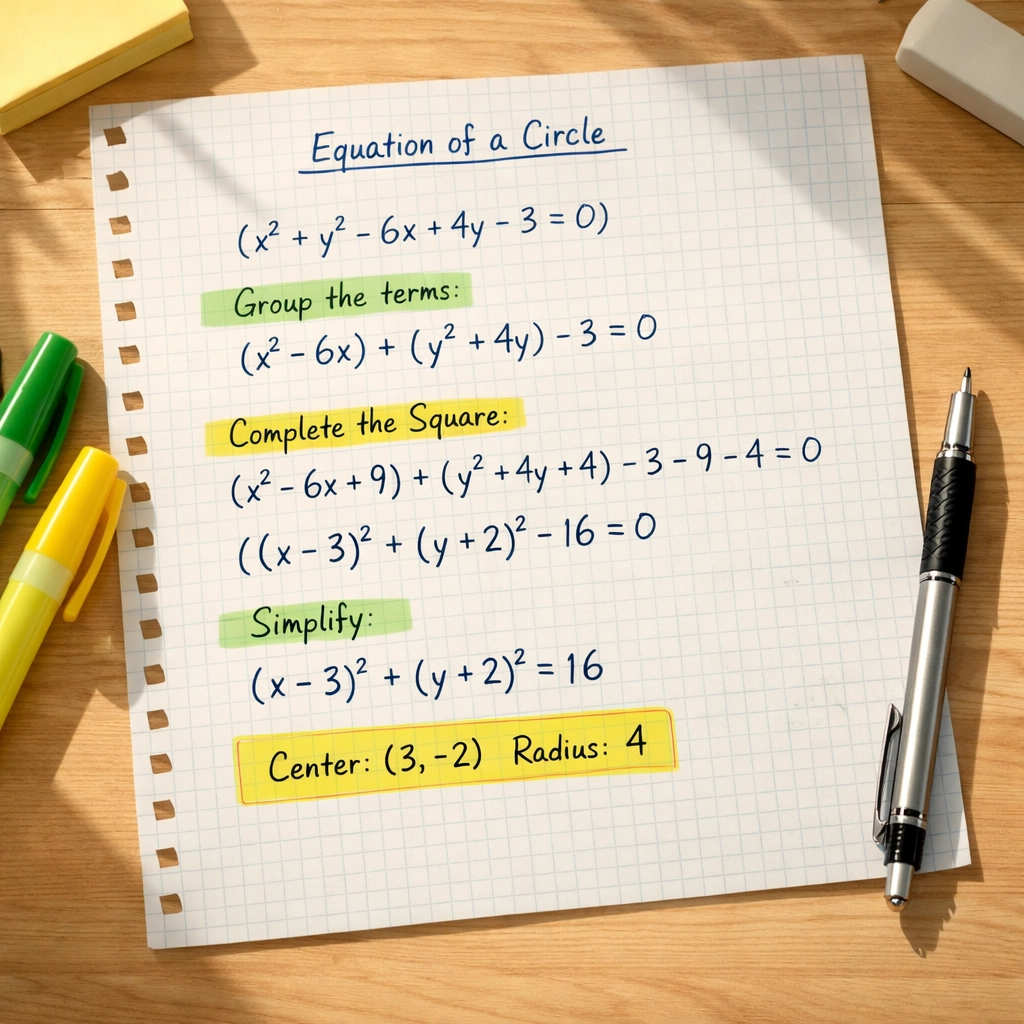 Equation of a Circle
(x² + y² − 6x + 4y − 3 = 0)
Group the terms:
(x² − 6x) + (y² + 4y) − 3 = 0
Complete the Square:
(x² − 6x + 9) + (y² + 4y + 4) − 3 − 9 − 4 = 0
((x − 3)² + (y + 2)² − 16 = 0
Simplify:
(x − 3)² + (y + 2)² = 16
Center: (3, −2) Radius: 4